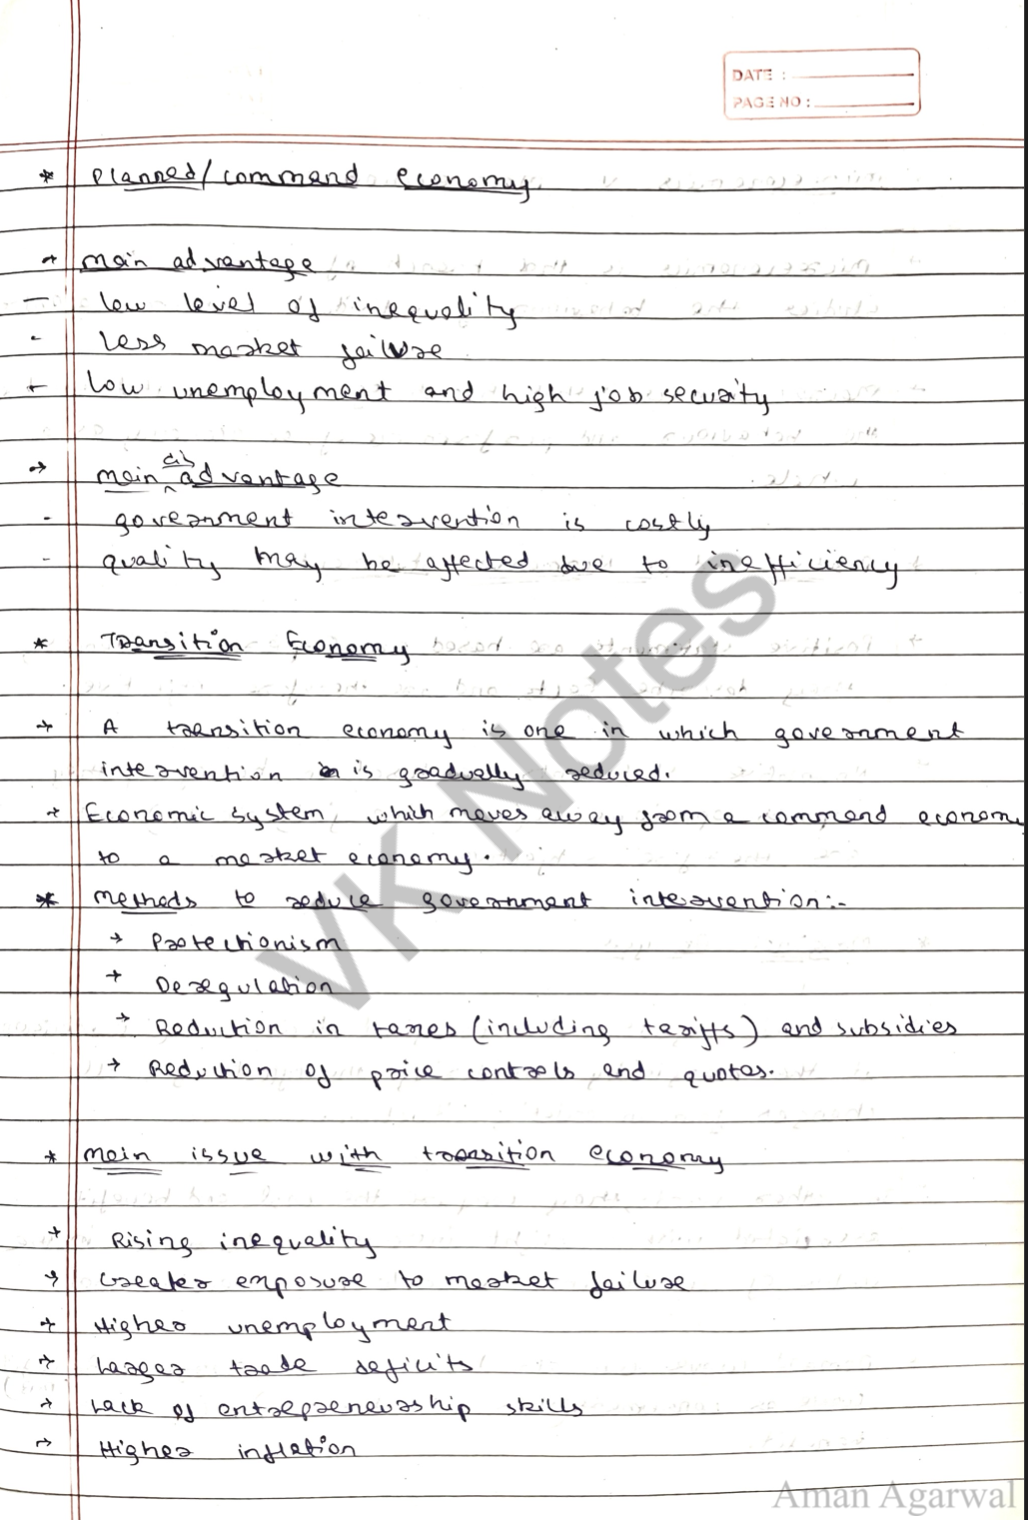 DATE :
PAGE NO :
* Planned/command economy
→ main advantage
- low level of inequality
- Less market failure
- Low unemployment and high job security
→ main disadvantage
- government intervention is costly
- quality may be affected due to inefficiency
* Transition Economy
→ A transition economy is one in which government
intervention is gradually reduced.
→ Economic system, which moves away from a command economy
to a market economy.
* methods to reduce government intervention:-
→ Protectionism
→ Deregulation
→ Reduction in taxes (including tariffs) and subsidies
→ Reduction of price controls and quotas.
* main issue with transition economy
→ Rising inequality
→ Greater exposure to market failure
→ Higher unemployment
→ Larger trade deficits
→ Lack of entrepreneurship skills
→ Higher inflation
VK Notes
Aman Agarwal